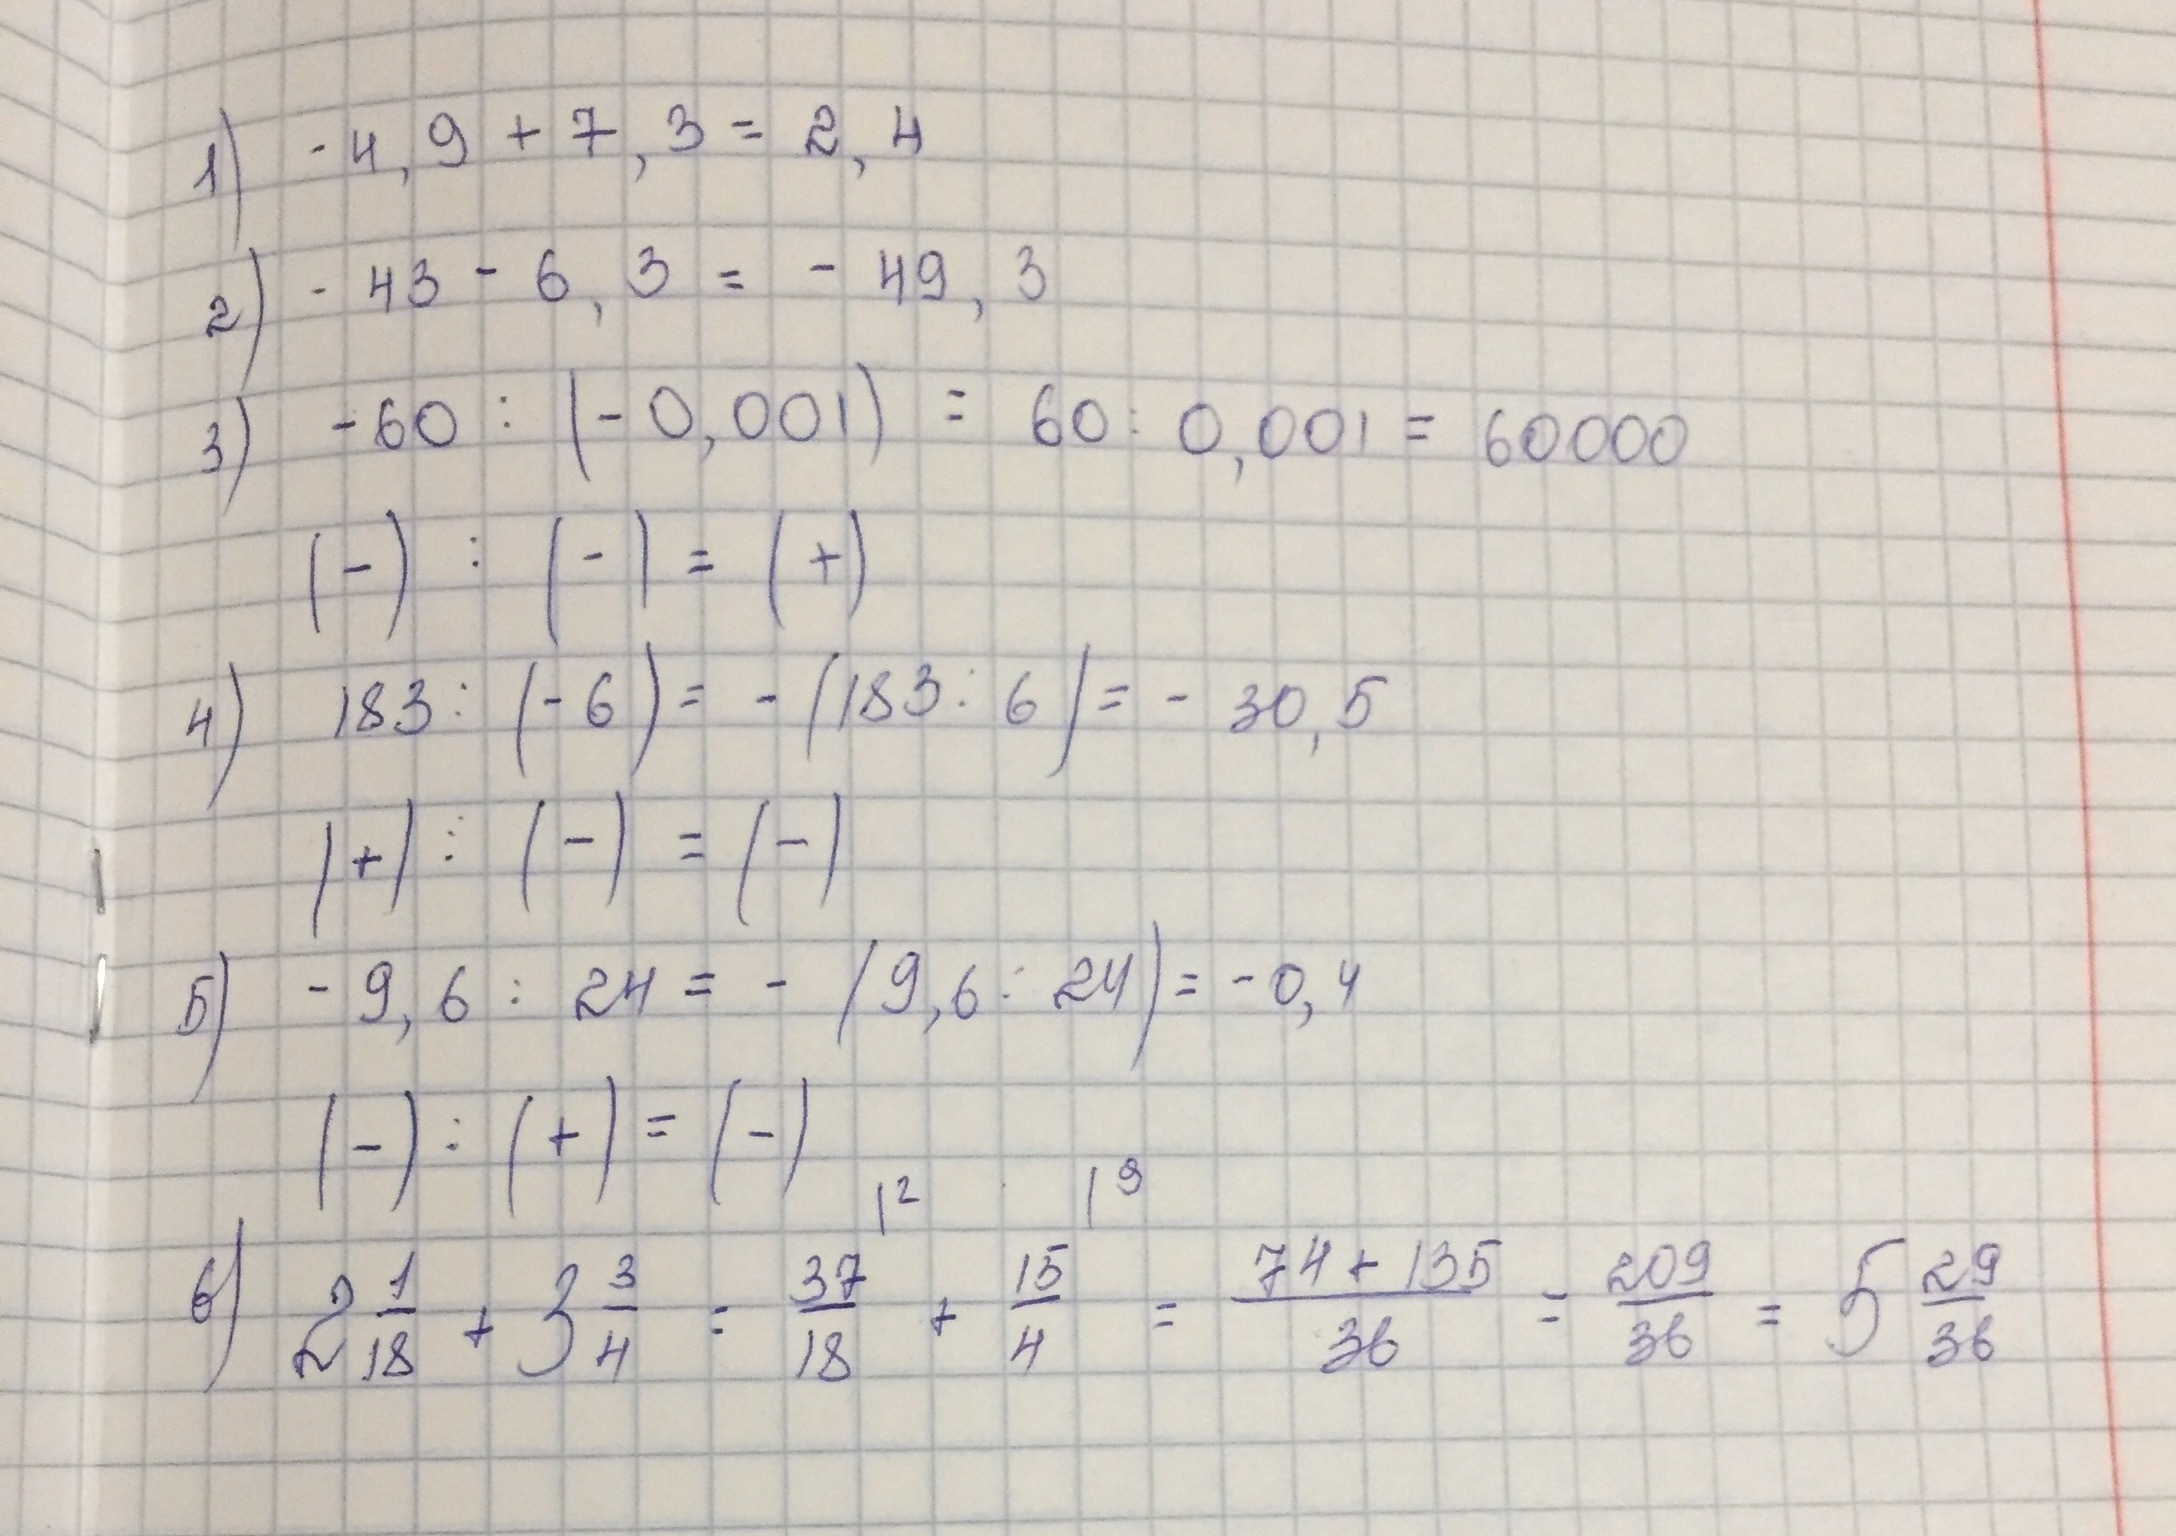 1) -4,9 + 7,3 = 2,4
2) -43 - 6,3 = -49,3
3) -60 : (-0,001) = 60 : 0,001 = 60000
(-) : (-) = (+)
4) 183 : (-6) = -(183 : 6) = -30,5
(+) : (-) = (-)
5) -9,6 : 24 = -(9,6 : 24) = -0,4
(-) : (+) = (-)
6) 2 1/18 + 3 3/4 = 37/18 |2 + 15/4 |9 = (74 + 135)/36 = 209/36 = 5 29/36